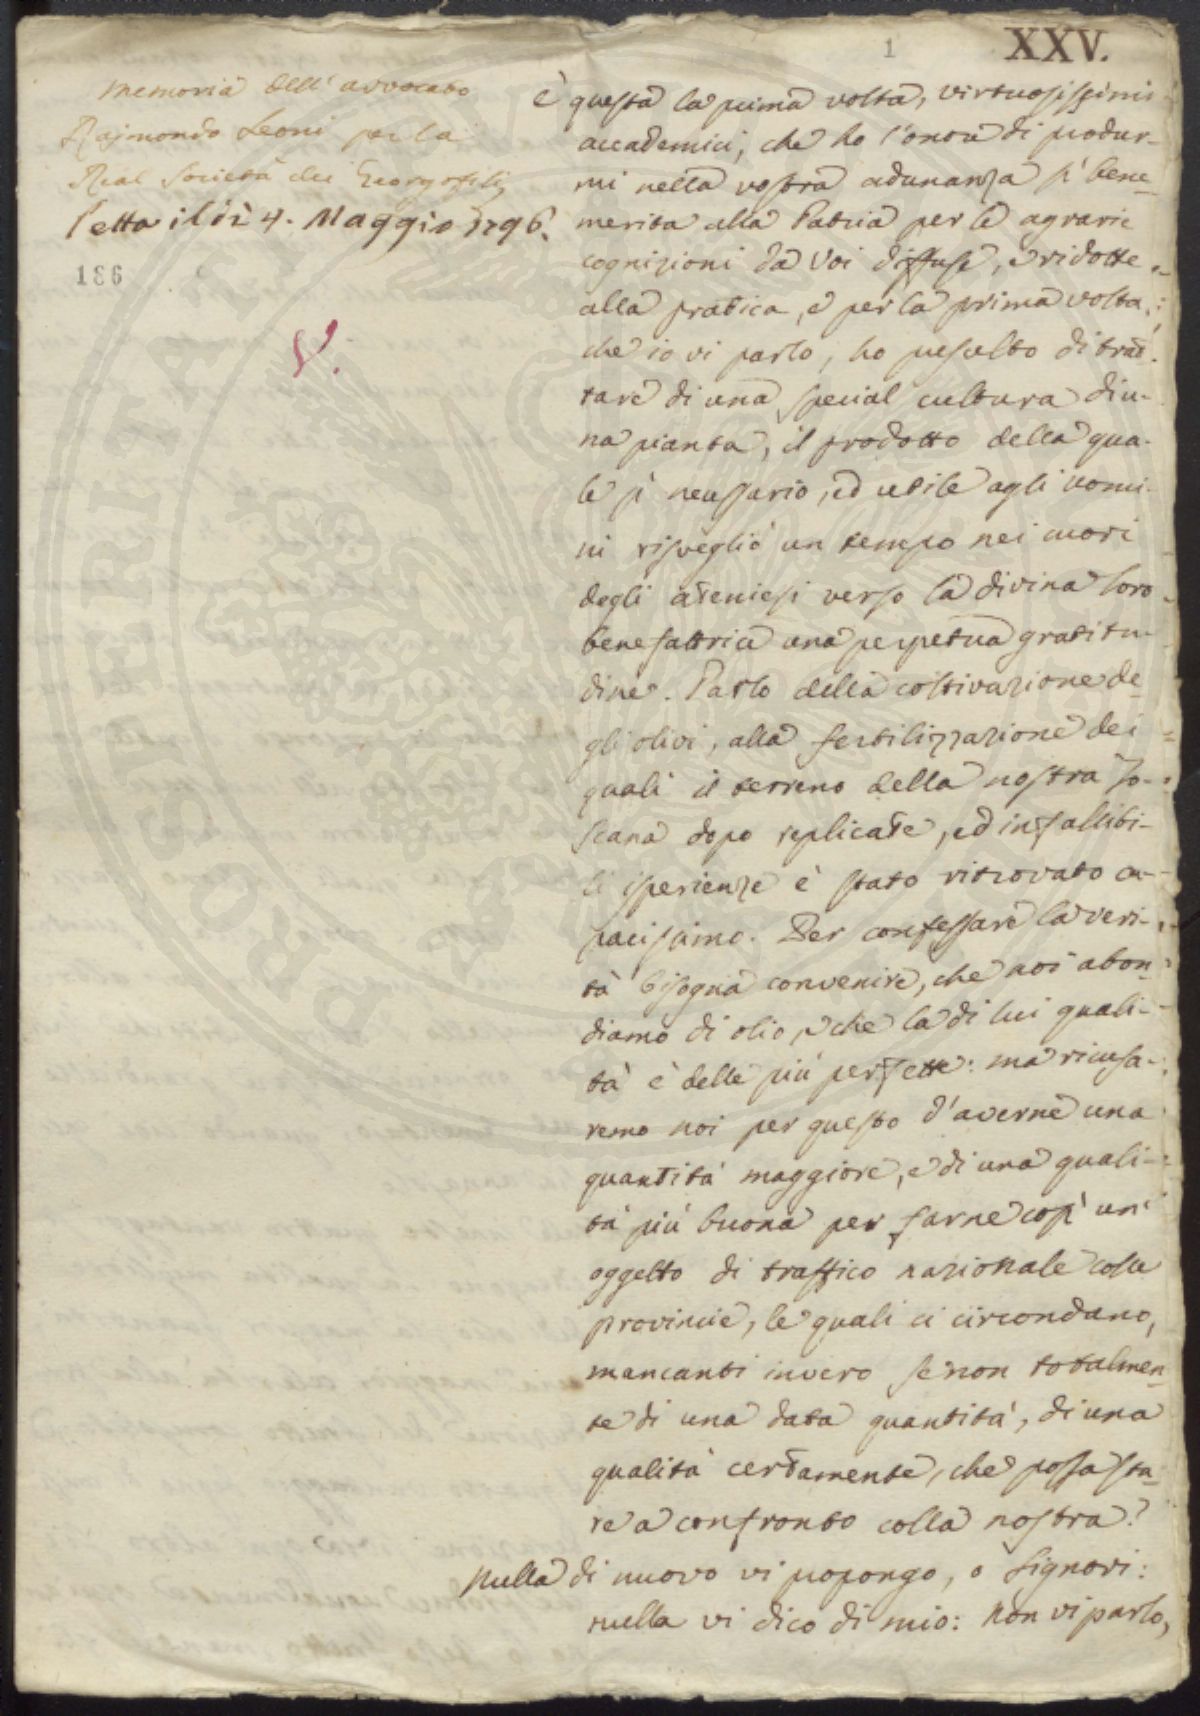 XXV.
1
Memoria dell' avvocato
Raimondo Leoni per la
Real Società dei Georgofili,
letta il dì 4. Maggio 1796.
186
V.
è questa la prima volta, virtuosissimi
accademici, che ho l'onore di produr-
mi nella vostra adunanza sì bene-
merita alla Patria per le agrarie
cognizioni da voi diffuse, e ridotte
alla pratica, e per la prima volta,
che io vi parlo, ho prescelto di trat-
tare di una special cultura di u-
na pianta, il prodotto della qua-
le sì necessario, ed utile agli uomi-
ni risvegliò un tempo nei cuori
degli ateniesi verso la divina loro
benefattrice una perpetua gratitu-
dine. Parlo della coltivazione de-
gli olivi, alla fertilizzazione dei
quali il terreno della nostra To-
scana dopo replicate, ed infallibi-
li sperienze è stato ritrovato ca-
pacissimo. Per confessare la veri-
tà bisogna convenire, che noi abon-
diamo di olio, e che la di lui quali-
tà è delle più perfette: ma ricusa-
remo noi per questo d'averne una
quantità maggiore, e di una quali-
tà più buona per farne così un'
oggetto di traffico nazionale colle
provincie, le quali ci circondano,
mancanti invero se non totalmen-
te di una data quantità, di una
qualità certamente, che possa sta-
re a confronto colla nostra?
Nulla di nuovo vi propongo, o Signori:
nulla vi dico di mio: Non vi parlo,
PROPRIETÀ